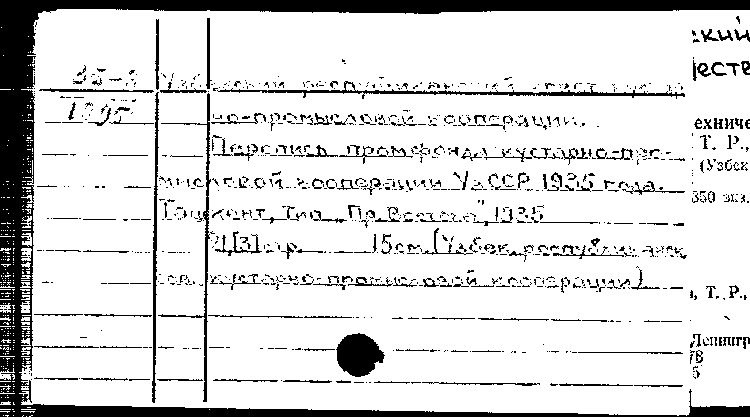 35-3 Узбекский республиканский
1895 но-промысловой кооперации.
Перепись промфонда кустарно-про-
мысловой кооперации УзССР 1935 года.
Ташкент, Тип. "Пр. Востока", 1935
21,[3] стр. 15см. (Узбек. республиканск.
кустарно-промысловой кооперации)
ский
ехниче
Т. Р.,
(Узбек
350 экз.
Т. Р.,
Ленингр
78
5